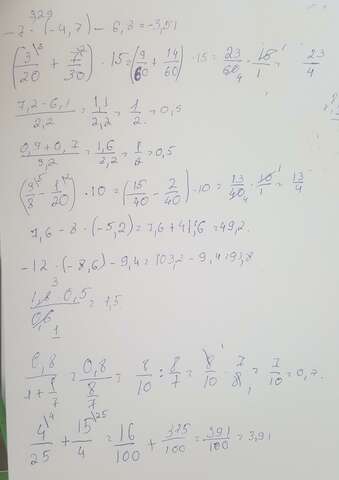 329
-7 · (-4,7) - 6,3 = -3,51
(3^3/20 + 7^2/30) · 15 = (9/60 + 14/60) · 15 = 23/60 4 · 15^1/1 = 23/4
7,2-6,1/2,2 = 1,1/2,2 = 1/2 = 0,5
0,9+0,7/3,2 = 1,6/3,2 = 1/2 = 0,5
(3^5/8 - 1^2/20) · 10 = (15/40 - 2/40) · 10 = 13/40 4 · 10^1/1 = 13/4
7,6 - 8 · (-5,2) = 7,6 + 41,6 = 49,2.
-12 · (-8,6) - 9,4 = 103,2 - 9,4 = 93,8
1,8^3 · 0,5/0,6 1 = 1,5
0,8/1+1/7 = 0,8/8/7 = 8/10 : 8/7 = 8^1/10 · 7/8 1 = 7/10 = 0,7.
4^4/25 + 15^25/4 = 16/100 + 375/100 = 391/100 = 3,91